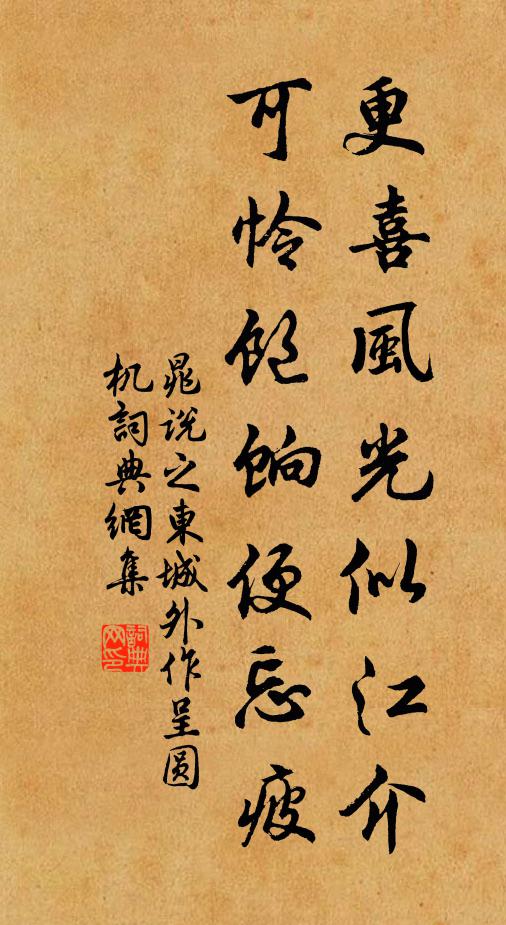 更喜風光似江介
可怜飽餉便忘疲
晁説之東城外作呈圆
机詞典網集
詞典
网印